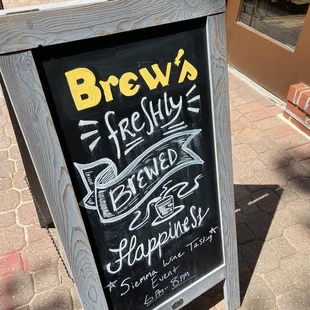 Brew's
freshly
BREWED
Happiness
Siemma Wine Tasting
Event
6pm-8pm